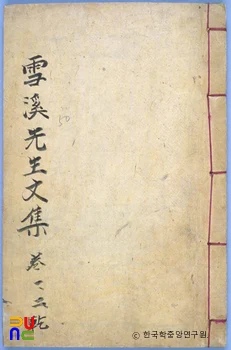 雪溪先生文集 卷一之二 乾
50
© 한국학중앙연구원.